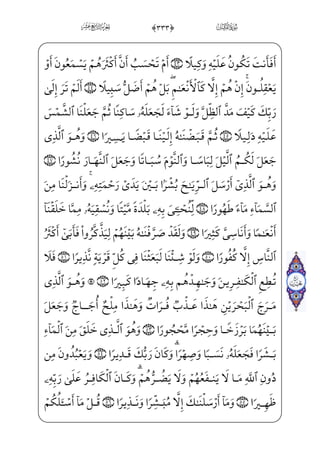 سُورَةُ الفُرْقَانِ ﴿٣٣٣﴾ الجُزْءُ التَّاسِعَ عَشَرَ
أَفَأَنتَ تَكُونُ عَلَيْهِ وَكِيلًا ٤٣ أَمْ تَحْسَبُ أَنَّ أَكْثَرَهُمْ يَسْمَعُونَ أَوْ
يَعْقِلُونَ إِنْ هُمْ إِلَّا كَالْأَنْعَٰمِ بَلْ هُمْ أَضَلُّ سَبِيلًا ٤٤ أَلَمْ تَرَ إِلَىٰ
رَبِّكَ كَيْفَ مَدَّ الظِّلَّ وَلَوْ شَآءَ لَجَعَلَهُۥ سَاكِنًا ثُمَّ جَعَلْنَا الشَّمْسَ
عَلَيْهِ دَلِيلًا ٤٥ ثُمَّ قَبَضْنَٰهُ إِلَيْنَا قَبْضًا يَسِيرًا ٤٦ وَهُوَ الَّذِي
جَعَلَ لَكُمُ الَّيْلَ لِبَاسًا وَالنَّوْمَ سُبَاتًا وَجَعَلَ النَّهَارَ نُشُورًا ٤٧
وَهُوَ الَّذِيٓ أَرْسَلَ الرِّيَٰحَ بُشْرًا بَيْنَ يَدَيْ رَحْمَتِهِۦ وَأَنزَلْنَا مِنَ
السَّمَآءِ مَآءً طَهُورًا ٤٨ لِّنُحْۦِيَ بِهِۦ بَلْدَةً مَّيْتًا وَنُسْقِيَهُۥ مِمَّا خَلَقْنَآ
أَنْعَٰمًا وَأَنَاسِيَّ كَثِيرًا ٤٩ وَلَقَدْ صَرَّفْنَٰهُ بَيْنَهُمْ لِيَذَّكَّرُوا فَأَبَىٰٓ أَكْثَرُ
النَّاسِ إِلَّا كُفُورًا ٥٠ وَلَوْ شِئْنَا لَبَعَثْنَا فِي كُلِّ قَرْيَةٍ نَّذِيرًا ٥١ فَلَا
تُطِعِ الْكَٰفِرِينَ وَجَٰهِدْهُم بِهِۦ جِهَادًا كَبِيرًا ٥٢ ۞ وَهُوَ الَّذِي
مَرَجَ الْبَحْرَيْنِ هَٰذَا عَذْبٌ فُرَاتٌ وَهَٰذَا مِلْحٌ أُجَاجٌ وَجَعَلَ
بَيْنَهُمَا بَرْزَخًا وَحِجْرًا مَّحْجُورًا ٥٣ وَهُوَ الَّذِي خَلَقَ مِنَ الْمَآءِ
بَشَرًا فَجَعَلَهُۥ نَسَبًا وَصِهْرًا وَكَانَ رَبُّكَ قَدِيرًا ٥٤ وَيَعْبُدُونَ مِن
دُونِ اللَّهِ مَا لَا يَنفَعُهُمْ وَلَا يَضُرُّهُمْ وَكَانَ الْكَافِرُ عَلَىٰ رَبِّهِۦ
ظَهِيرًا ٥٥ وَمَآ أَرْسَلْنَٰكَ إِلَّا مُبَشِّرًا وَنَذِيرًا ٥٦ قُلْ مَآ أَسْـَٔلُكُمْ